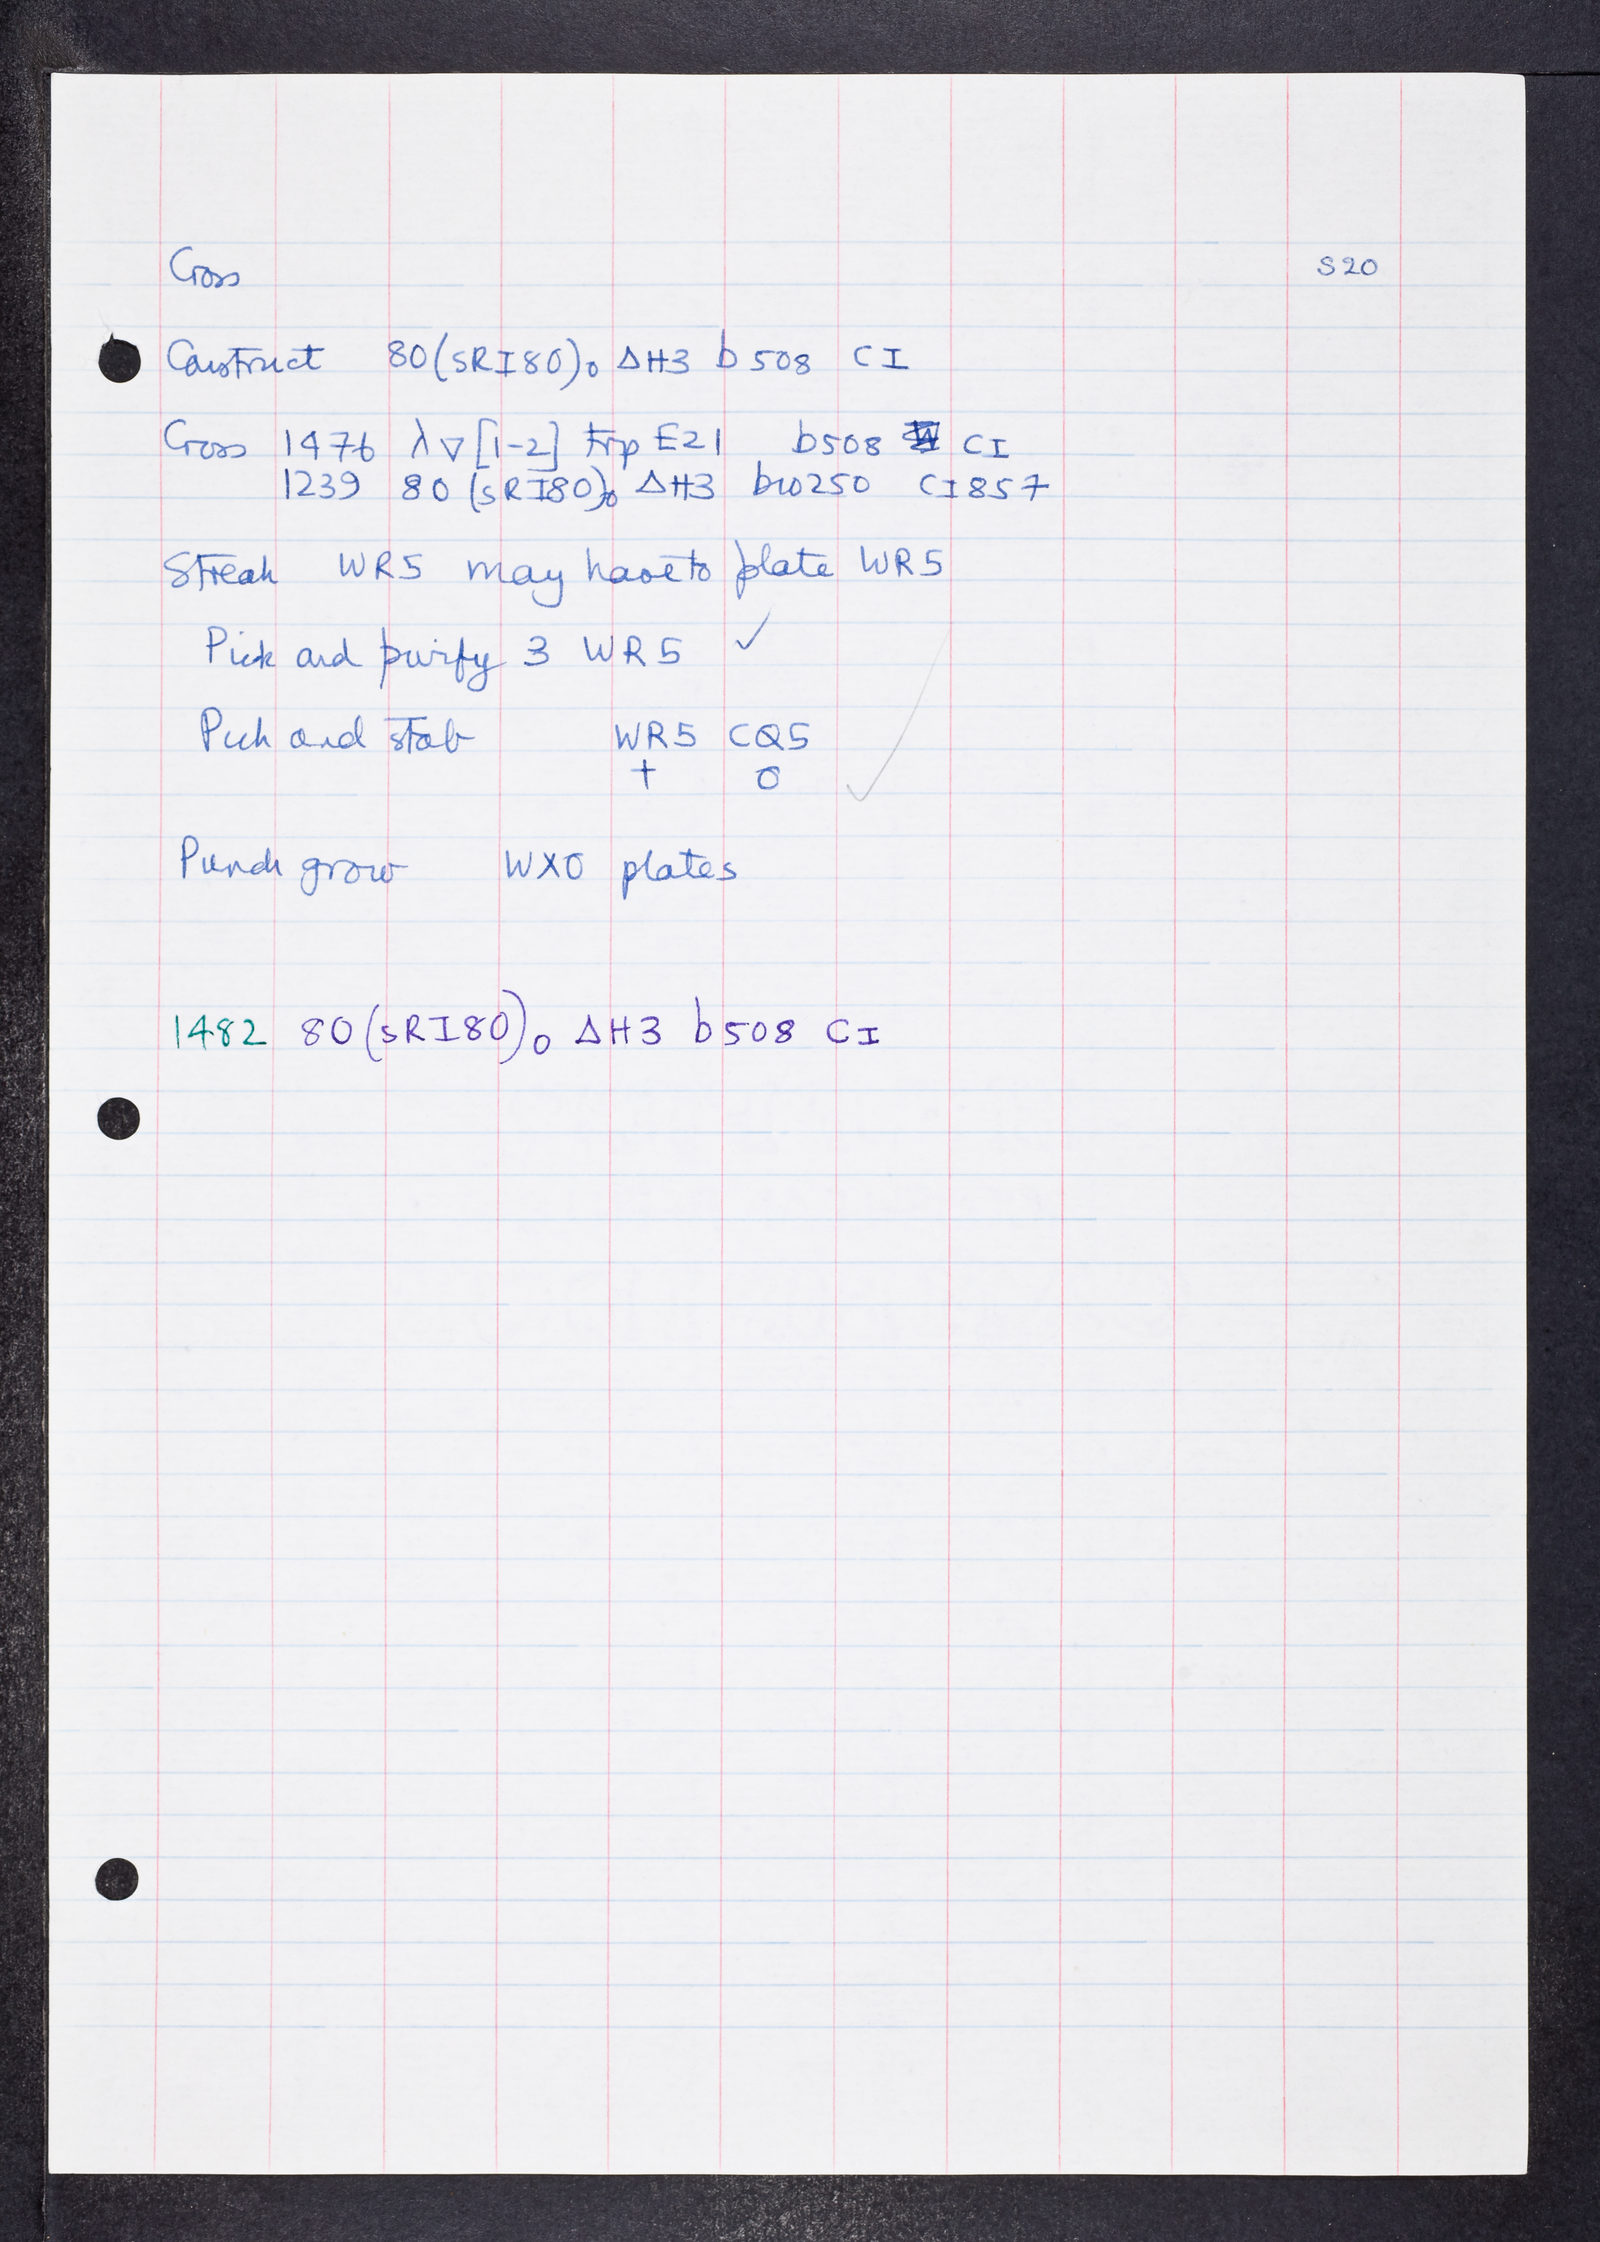 Cross S20
Construct 80(sRI80)₀ ΔH3 b508 CI
Cross 1476 λ∇[1-2] trp E21 b508 CI
1239 80(sRI80)₀ ΔH3 bio250 CI857
Streak WR5 may have to plate WR5
Pick and purify 3 WR5 ✓
Pick and stab WR5 CQ5
+ 0 ✓
Punch grow WX0 plates
1482 80(sRI80)₀ ΔH3 b508 CI